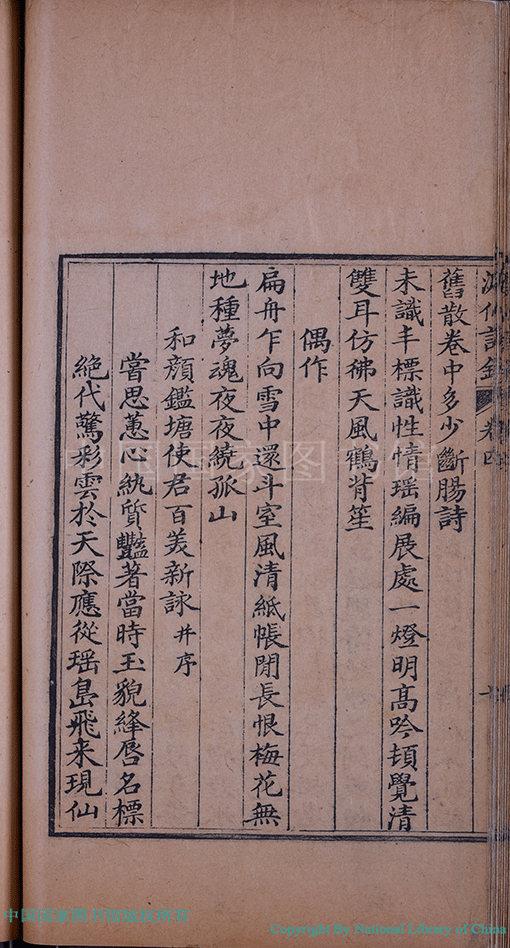 卷四
舊散卷中多少斷腸詩
未識丰標識性情瑶編展處一燈明高吟頓覺清
雙耳仿彿天風鶴背笙
偶作
扁舟乍向雪中還斗室風清紙帳閒長恨梅花無
地種夢魂夜夜繞孤山
和顔鑑塘使君百美新詠并序
嘗思蕙心紈質豔著當時玉貌絳唇名標
絶代驚彩雲於天際應從瑶島飛来現仙
中国国家图书馆
中国国家图书馆版权所有
Copyright By National Library of China